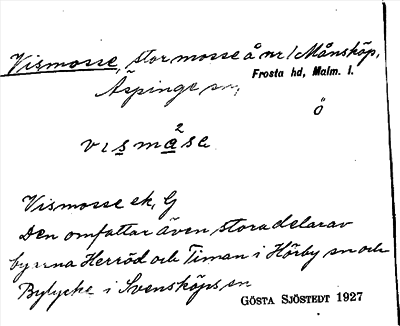 Vismosse, stor mosse å nr 1 Månsköp,
Frosta hd, Malm. l.
Äspinge sn,
ö
vismåse
2
Vismosse ek, G
Den omfattar även stora delar av
byarna Herröd och Timan i Hörby sn och
Bylycke i Svensköps sn
GÖSTA SJÖSTEDT 1927